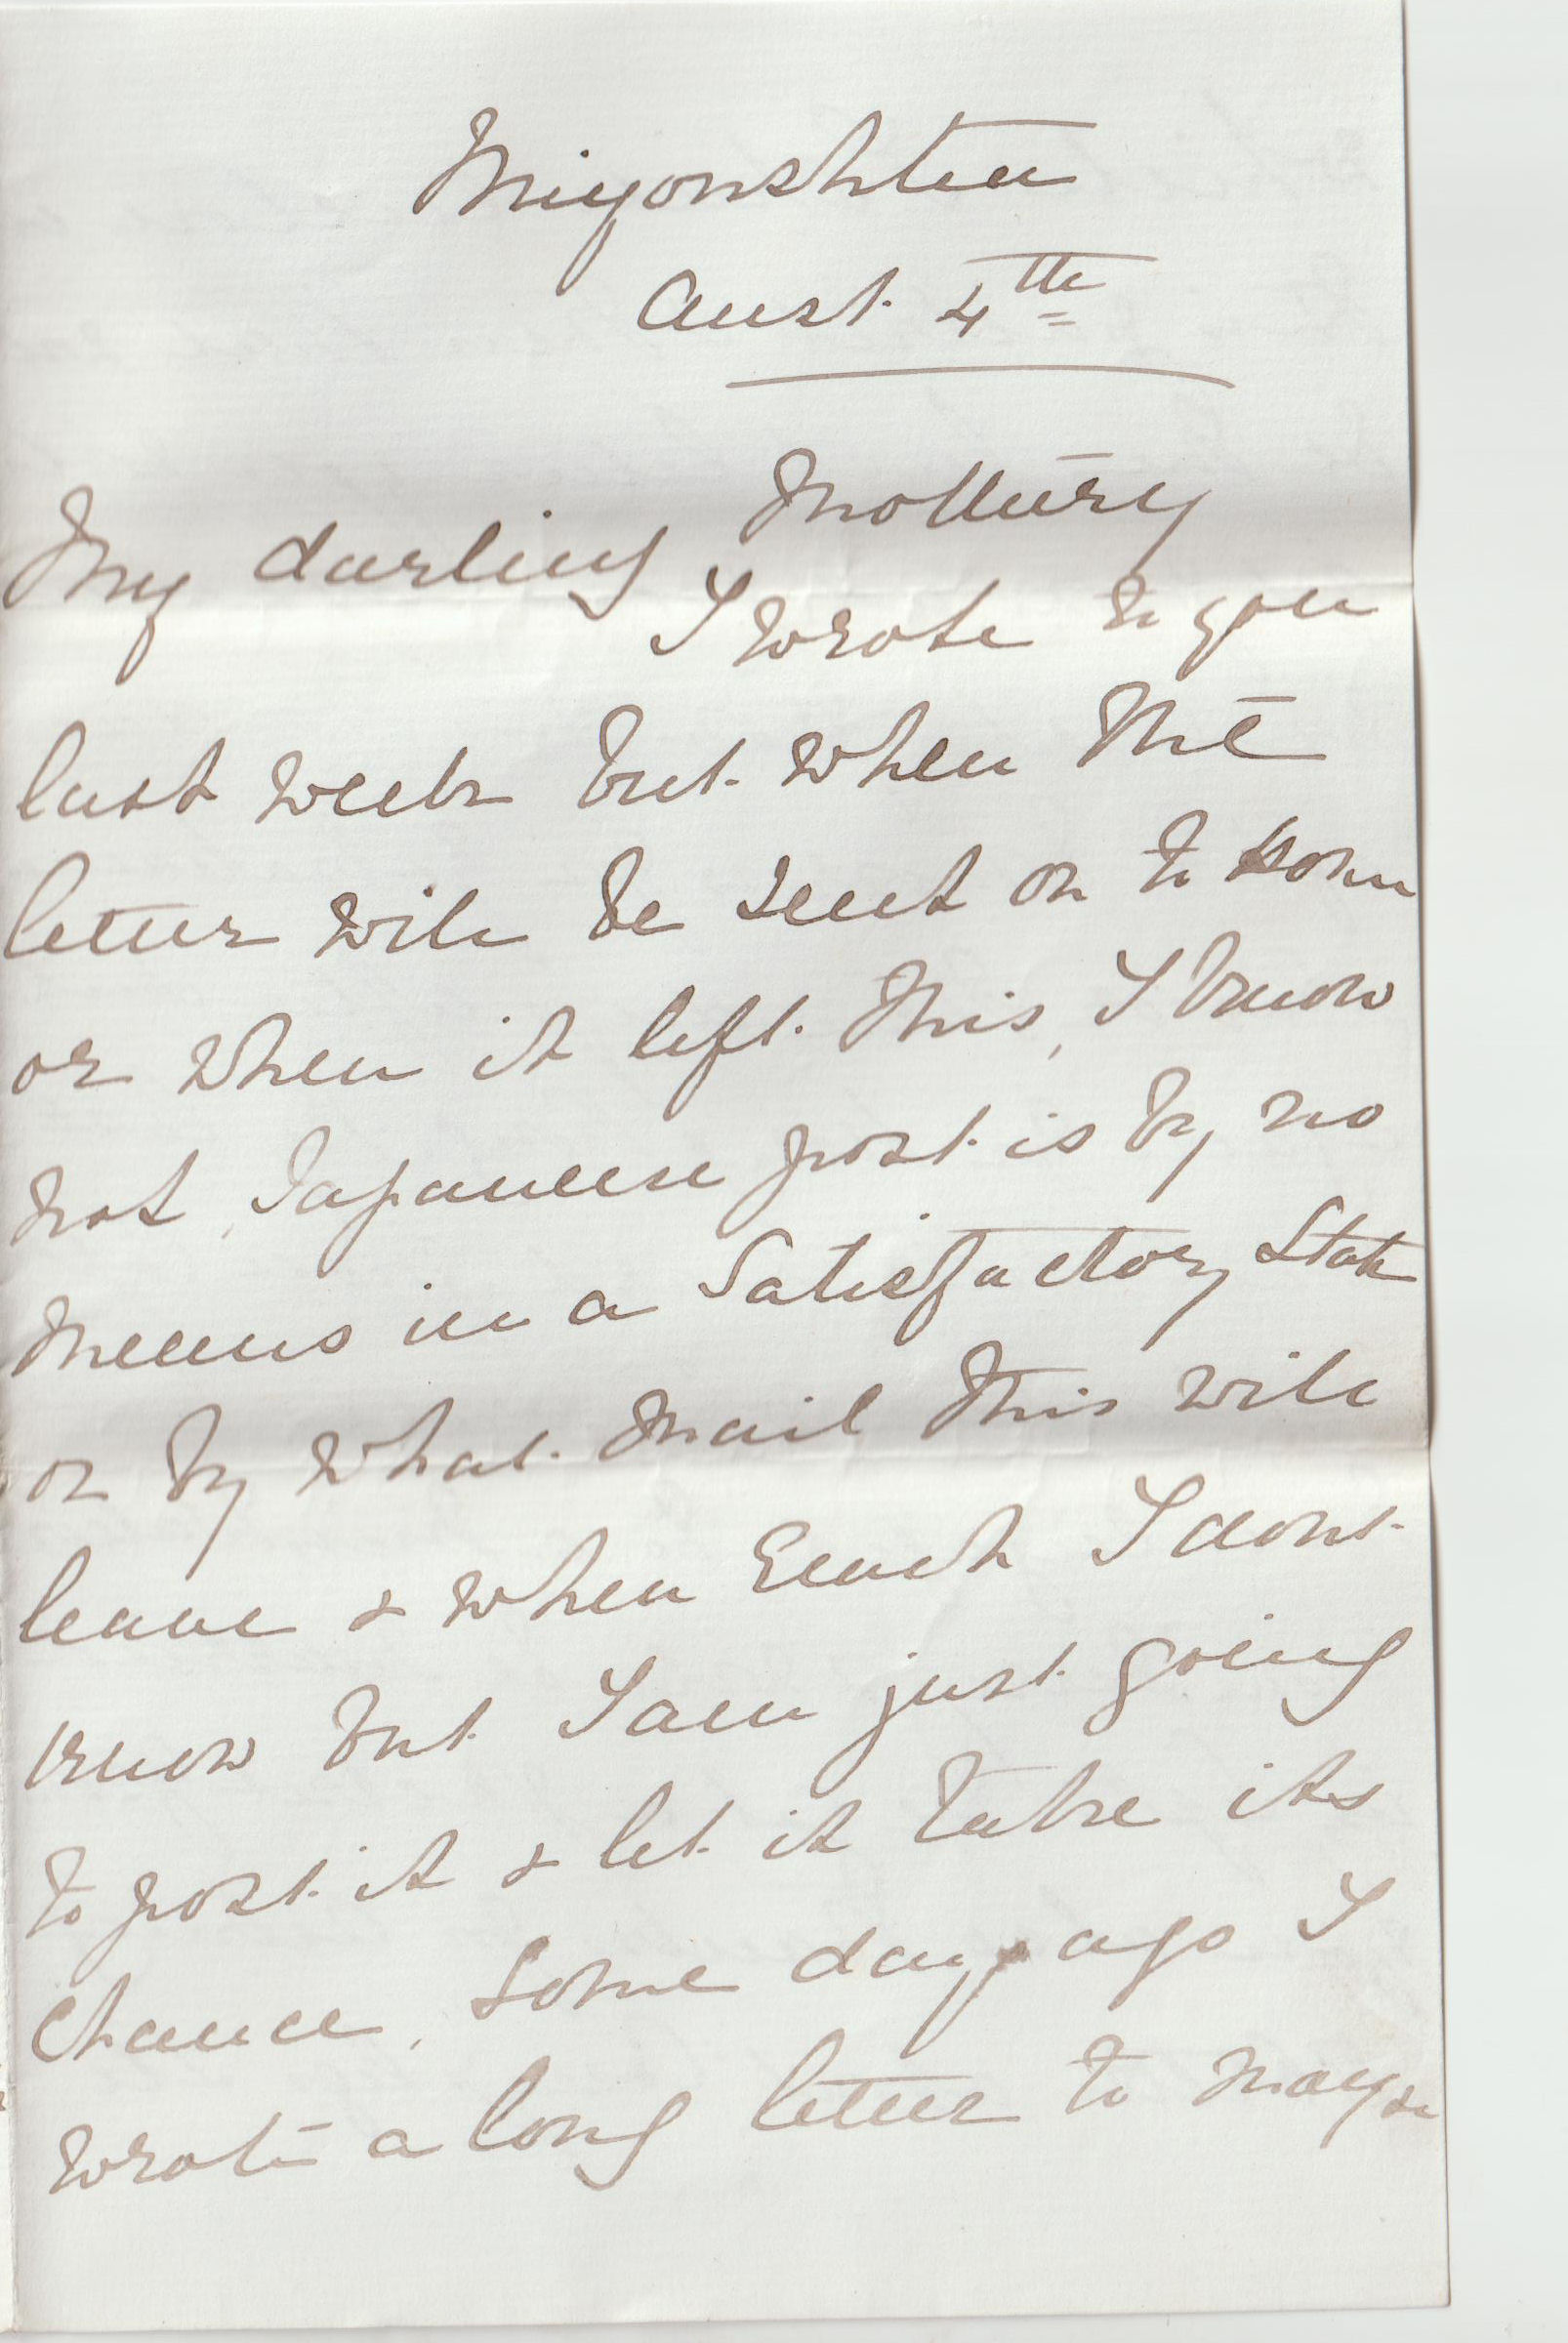 Miyonshtea
Aust. 4th
My darling Mothery
I wrote to you
last week but when the
letter will be sent on to
or when it left this, I know
not, Japaneese post is by no
means in a Satisfactory State
or by what mail this will
leave & when Each I dont
know but I am just going
to post it & let it take its
chance, Some days ago I
wrote a long letter to